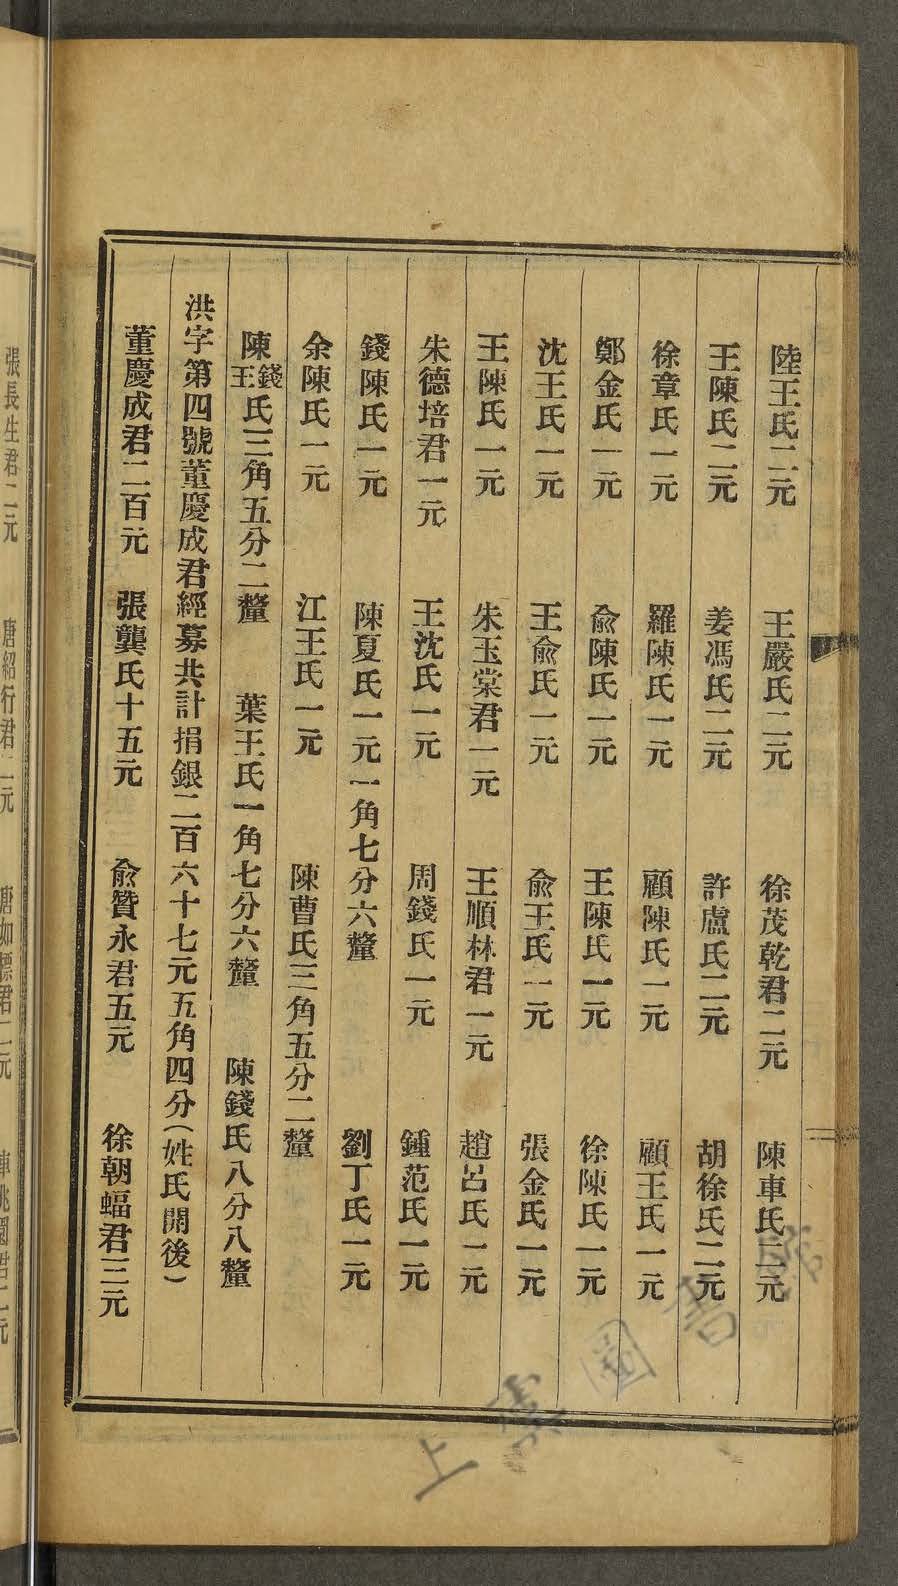 陸王氏二元　王嚴氏二元　徐茂乾君二元　陳車氏二元
王陳氏二元　姜馮氏二元　許盧氏二元　胡徐氏二元
徐章氏一元　羅陳氏一元　顧陳氏一元　顧王氏一元
鄭金氏一元　俞陳氏一元　王陳氏一元　徐陳氏一元
沈王氏一元　王俞氏一元　俞王氏一元　張金氏一元
王陳氏一元　朱玉棠君一元　王順林君一元　趙呂氏一元
朱德培君一元　王沈氏一元　周錢氏一元　鍾范氏一元
錢陳氏一元　陳夏氏一元一角七分六釐　劉丁氏一元
余陳氏一元　江王氏一元　陳曹氏三角五分二釐
陳錢王氏三角五分二釐　葉王氏一角七分六釐　陳錢氏八分八釐
洪字第四號董慶成君經募共計捐銀二百六十七元五角四分（姓氏開後）
董慶成君二百元　張龔氏十五元　俞贊永君五元　徐朝蝠君三元
張長生君二元　唐紹行君二元　唐如標君二元
上虞圖書館